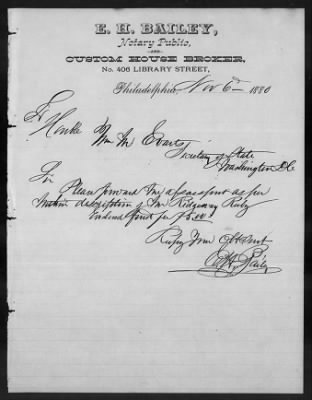 E. H. BAILEY,
Notary Public,
-AND-
CUSTOM HOUSE BROKER,
No. 406 LIBRARY STREET,
Philadelphia, Nov 6th 1880
Honble Wm M Evarts
Secretary of State
Washington DC
Sir
Please forward me a passport as per
within description of Mr Ridgeway
Enclosed find
Respy Your Obt Svt
E H Bailey